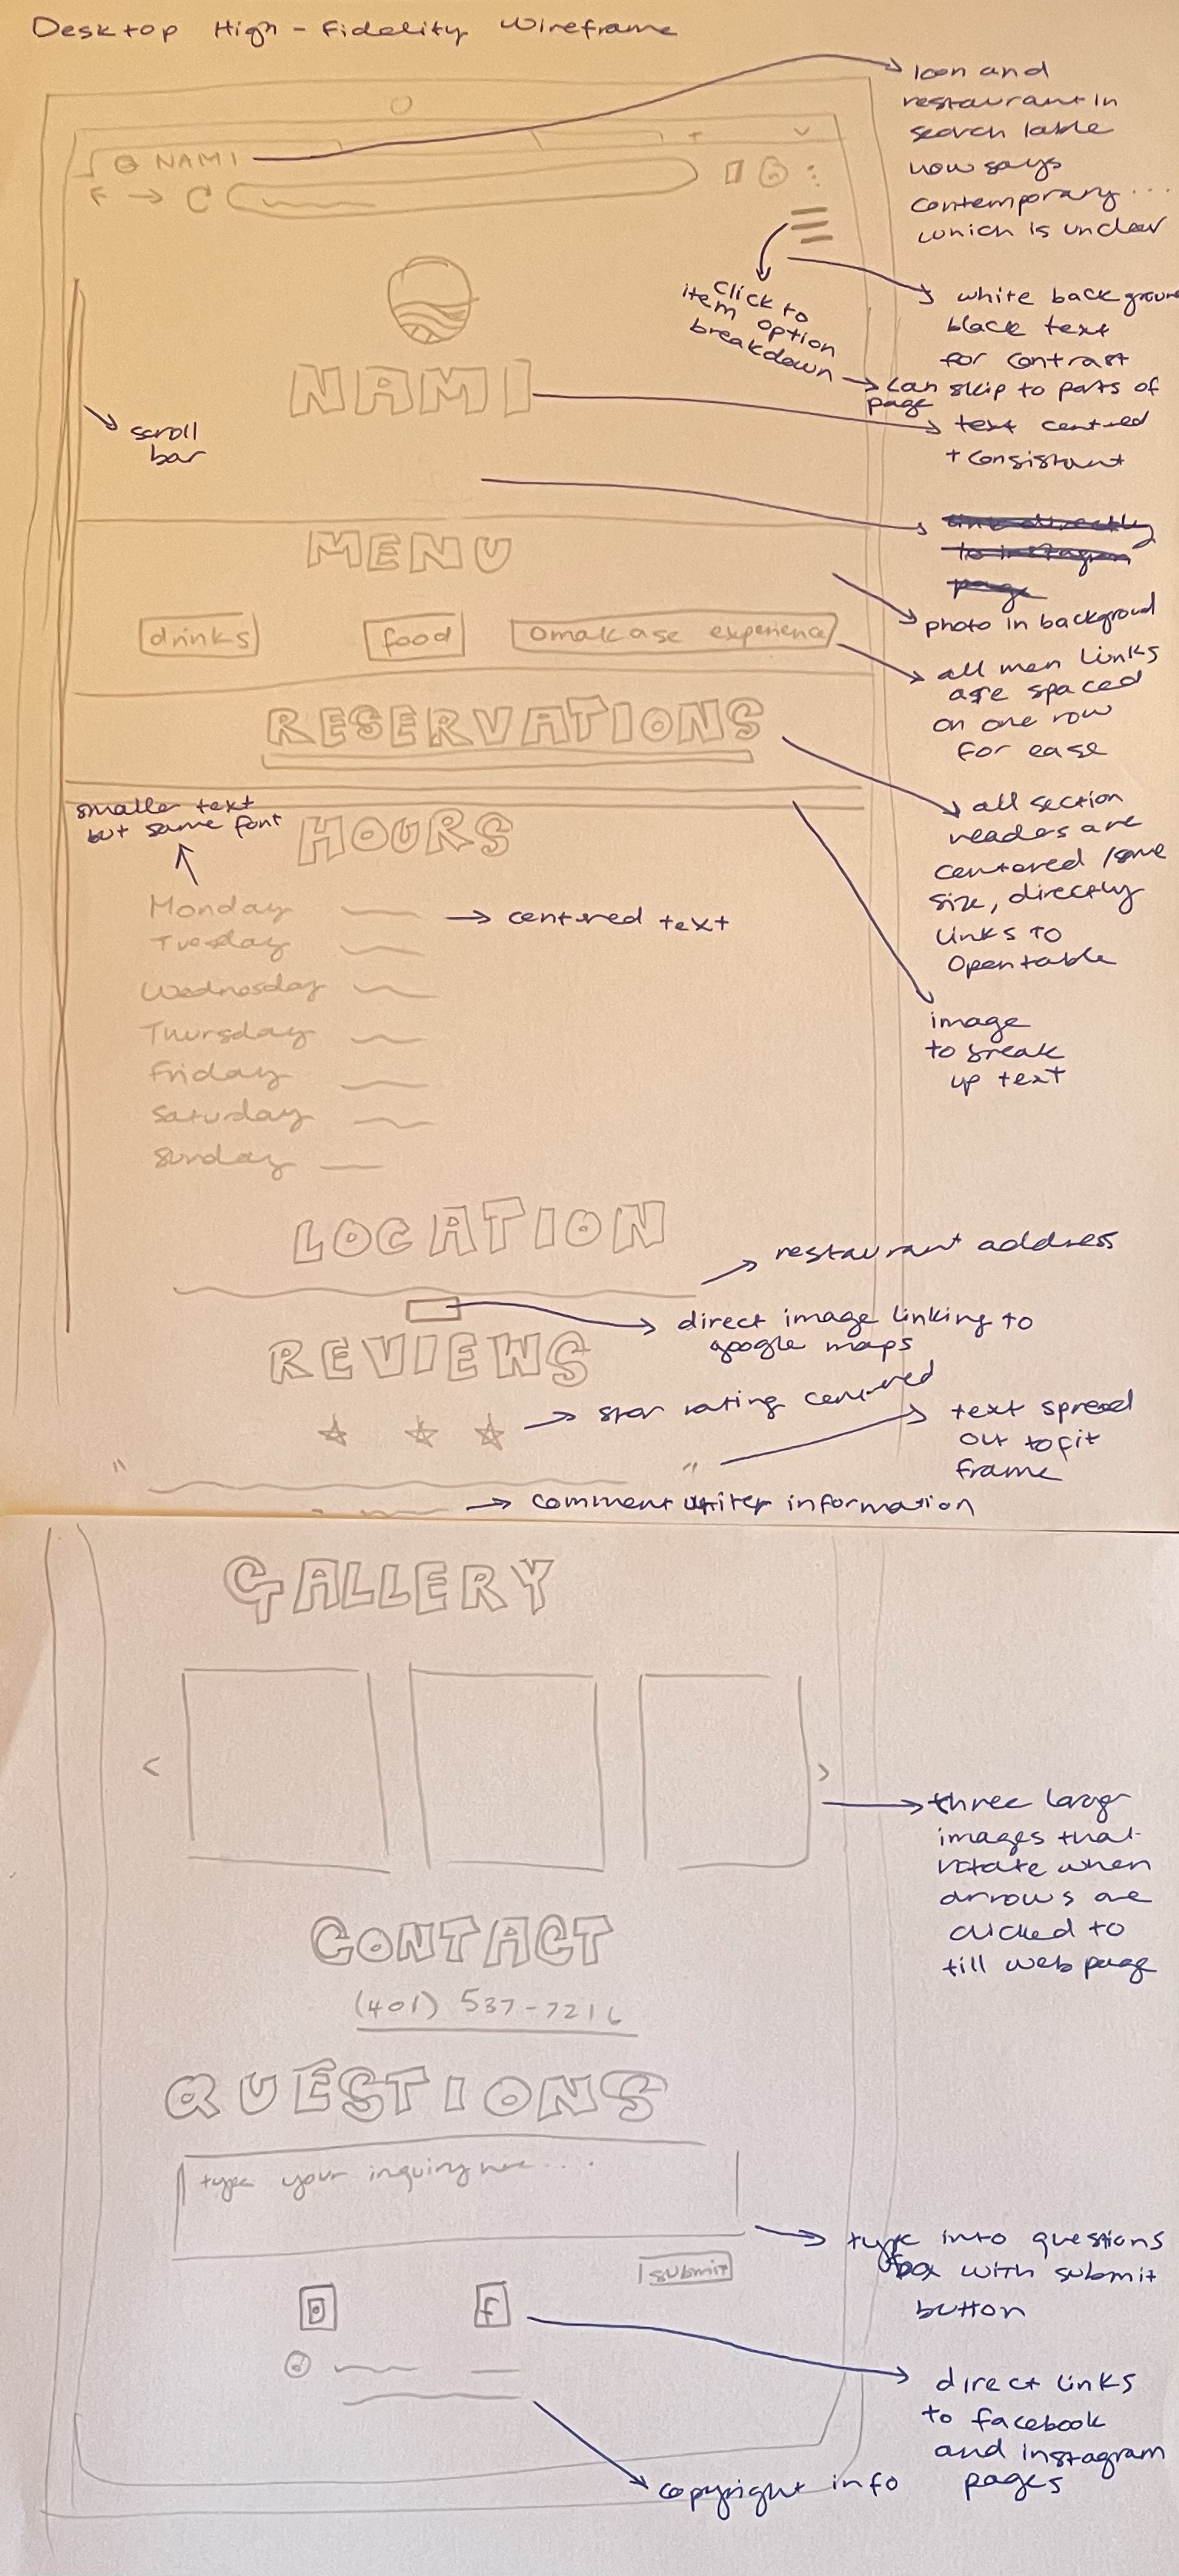 Desktop High-Fidelity Wireframe
Icon and
restaurant in
search lable
now says
contemporary...
which is unclear
NAMI
click to
item option
breakdown
can skip to parts of
page
white background
black text
for contrast
NAMI
text centred
+ consistant
scroll
bar
link directly
to instagram
page
MENU
photo in backgroud
drinks
food
Omakase experience
all men links
are spaced
on one row
for ease
RESERVATIONS
all section
headers are
centered / same
size, directly
links to
Opentable
smaller text
but same font
HOURS
image
to break
up text
Monday
centered text
Tuesday
Wednesday
Thursday
Friday
Saturday
Sunday
LOCATION
restaurant address
direct image linking to
google maps
REVIEWS
star rating centered
text spread
out to fit
frame
" "
comment writer information
GALLERY
< >
three large
images that
rotate when
arrows are
clicked to
fill web page
CONTACT
(401) 537-7216
QUESTIONS
type your inquiry here....
type into questions
box with submit
button
submit
f
direct links
to facebook
and instagram
pages
copyright info